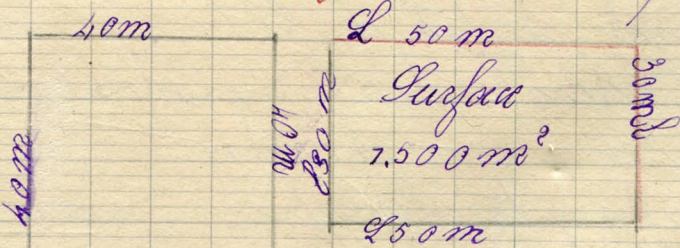 40m
40m
40m
L 50 m
l 30 m
Surface
1.500 m²
30m l
L 50 m